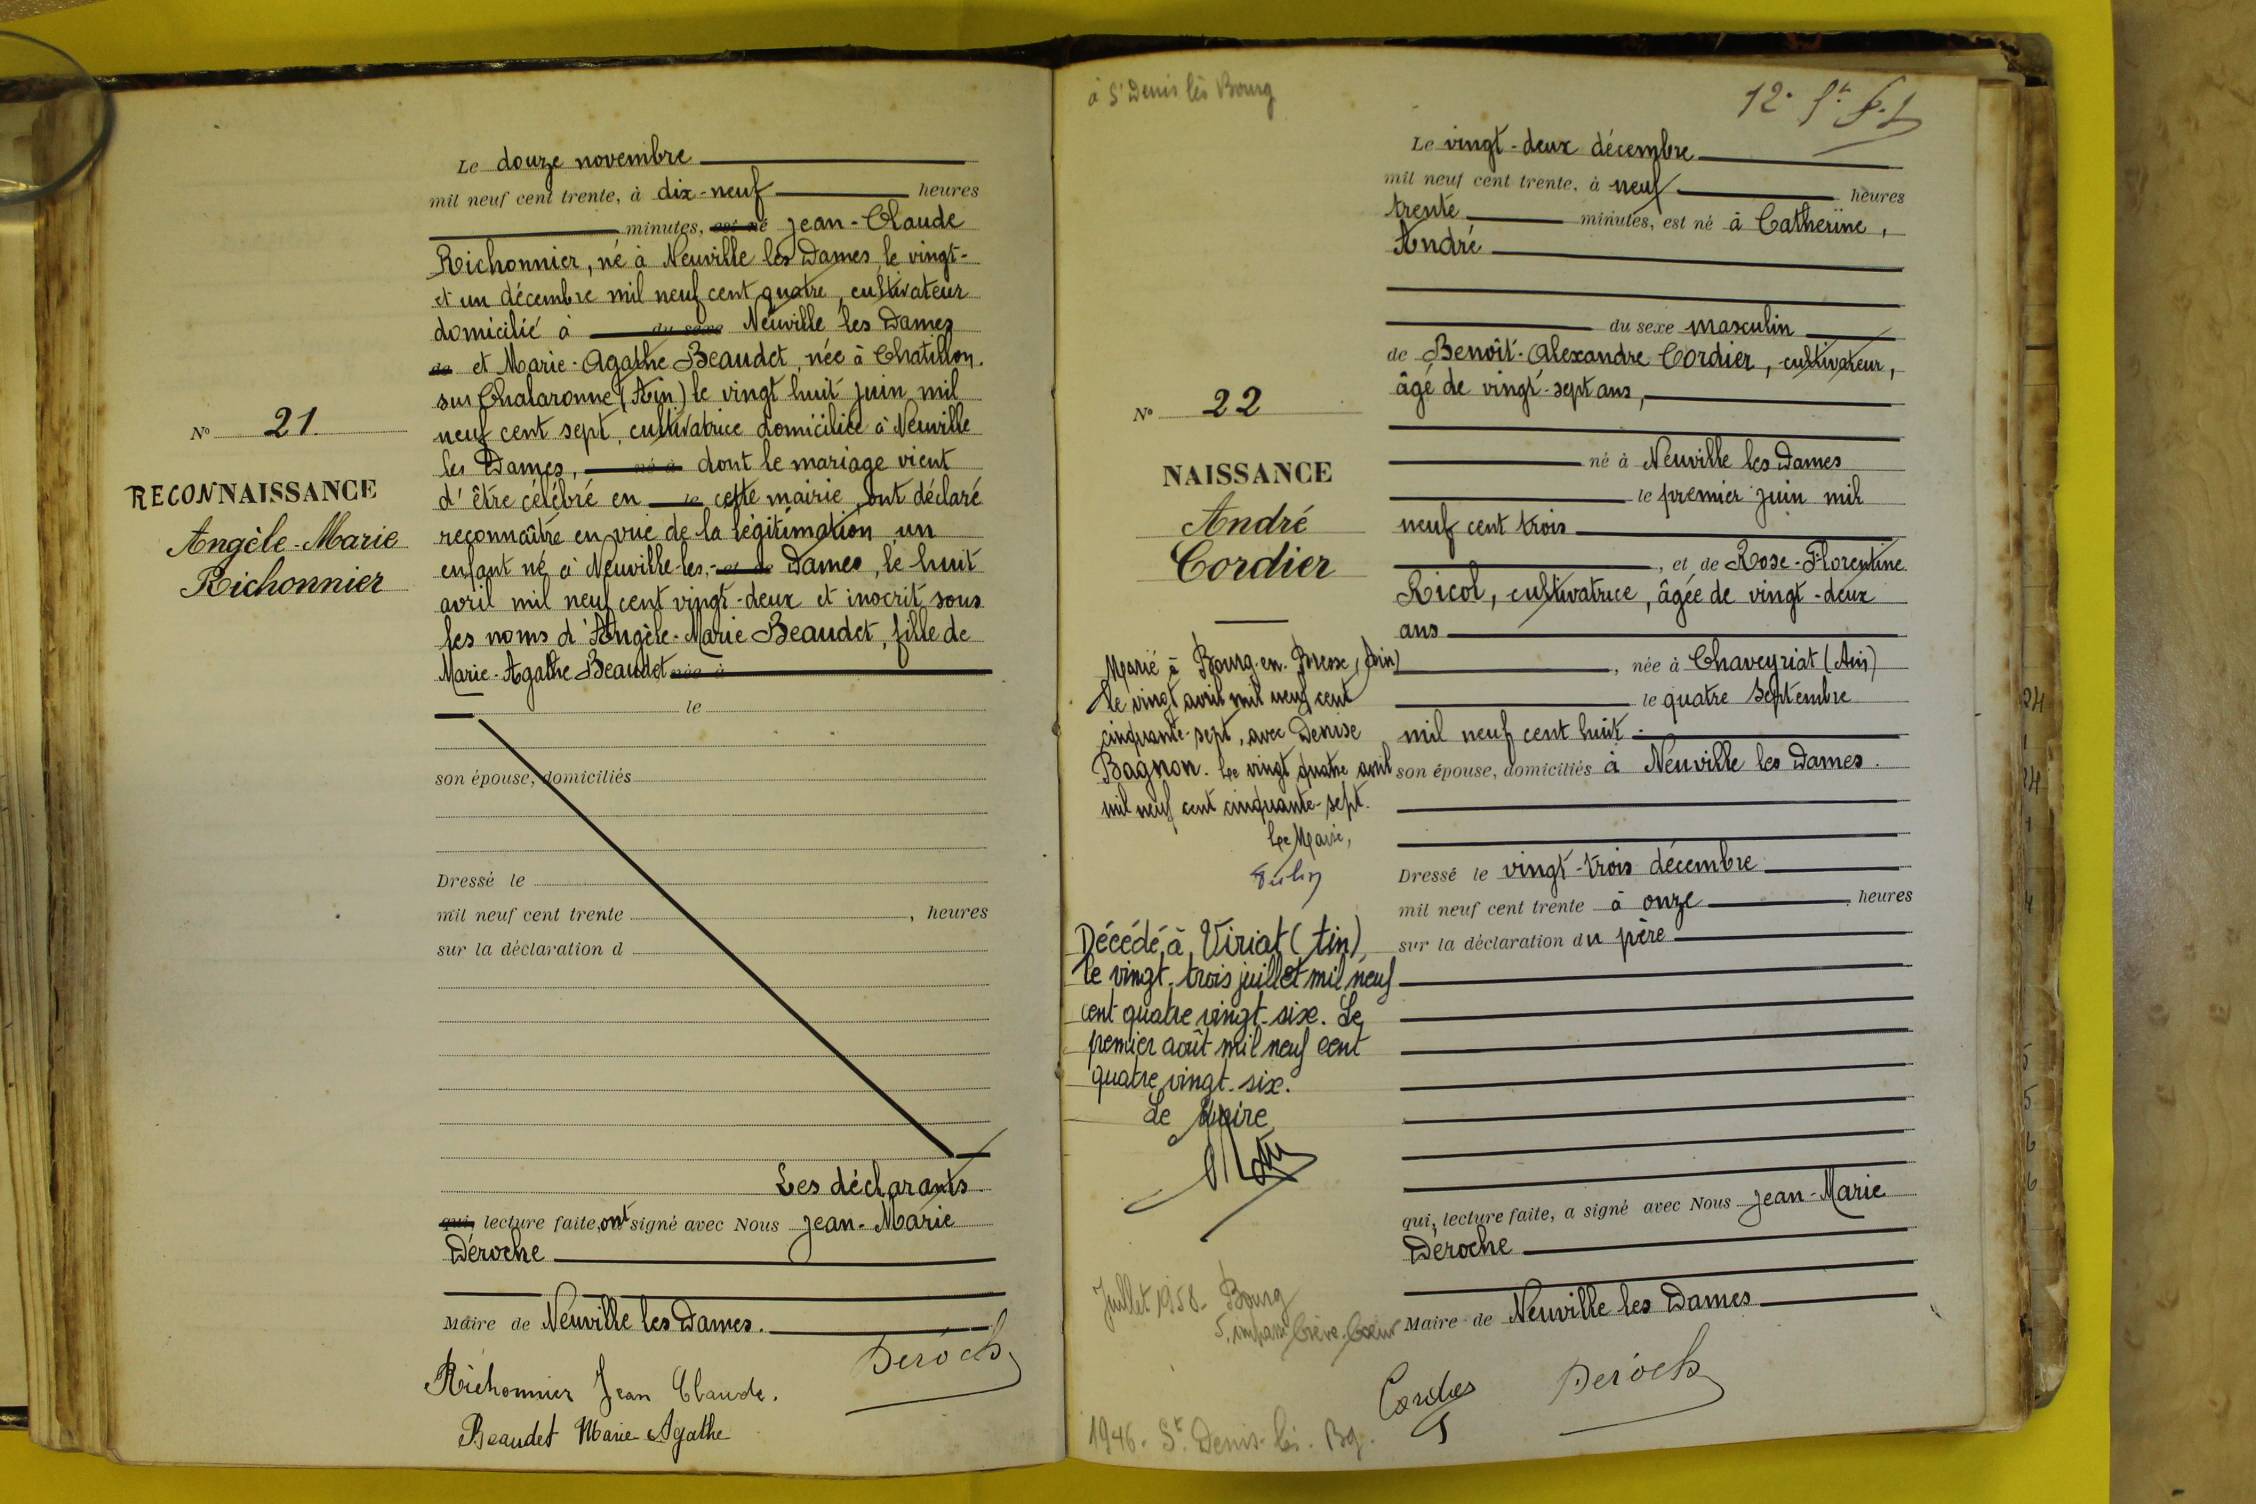 Le douze novembre
mil neuf cent trente, à dix-neuf heures
minutes, est né Jean-Claude
Richonnier, né à Neuville les Dames le vingt-
et un décembre mil neuf cent quatre, cultivateur
domicilié à du sexe Neuville les Dames
de et Marie-Agathe Beaudet, née à Chatillon.
sur Chalaronne (Ain) le vingt huit juin mil
neuf cent sept, cultivatrice domiciliée à Neuville
les Dames, né à dont le mariage vient
d'être célébré en le cette mairie, ont déclaré
reconnaître en vue de la légitimation un
enfant né à Neuville-les- et de Dames, le huit
avril mil neuf cent vingt-deux et inscrit sous
les noms d'Angèle-Marie Beaudet, fille de
Marie-Agathe Beaudet née à
le
son épouse, domiciliés
Dressé le
mil neuf cent trente , heures
sur la déclaration d
Les déclarants
qui, lecture faite, ont signé avec Nous Jean-Marie
Déroche
Maire de Neuville les Dames.
Déroch
Richonnier Jean Claude.
Beaudet Marie Agathe
N° 21
RECONNAISSANCE
Angèle-Marie
Richonnier
à St Denis lès Bourg
12.
Le vingt-deux décembre
mil neuf cent trente, à neuf heures
trente minutes, est né à Catherine,
André
du sexe masculin
de Benoît-Alexandre Cordier, cultivateur,
âgé de vingt-sept ans,
né à Neuville les Dames
le premier juin mil
neuf cent trois
, et de Rose-Florentine
Ricol, cultivatrice, âgée de vingt-deux
ans
, née à Chaveyriat (Ain)
le quatre septembre
mil neuf cent huit.
son épouse, domiciliés à Neuville les Dames.
Dressé le vingt-trois décembre
mil neuf cent trente à onze heures
sur la déclaration du père
qui, lecture faite, a signé avec Nous Jean-Marie
Déroche
Maire de Neuville les Dames
Cordier
Déroch
N° 22
NAISSANCE
André
Cordier
Marié à Bourg-en-Bresse, (Ain)
le vingt avril mil neuf cent
cinquante-sept, avec Denise
Bagnon. Le vingt quatre avril
mil neuf cent cinquante-sept.
Le Maire,
Décédé à Viriat (Ain)
le vingt-trois juillet mil neuf
cent quatre vingt-six. Le
premier août mil neuf cent
quatre vingt-six.
Le Maire
Juillet 1958- Bourg
5, impasse
1946- St. Denis-lès-Bg.
24
1
24
1
4
5
5
6
6